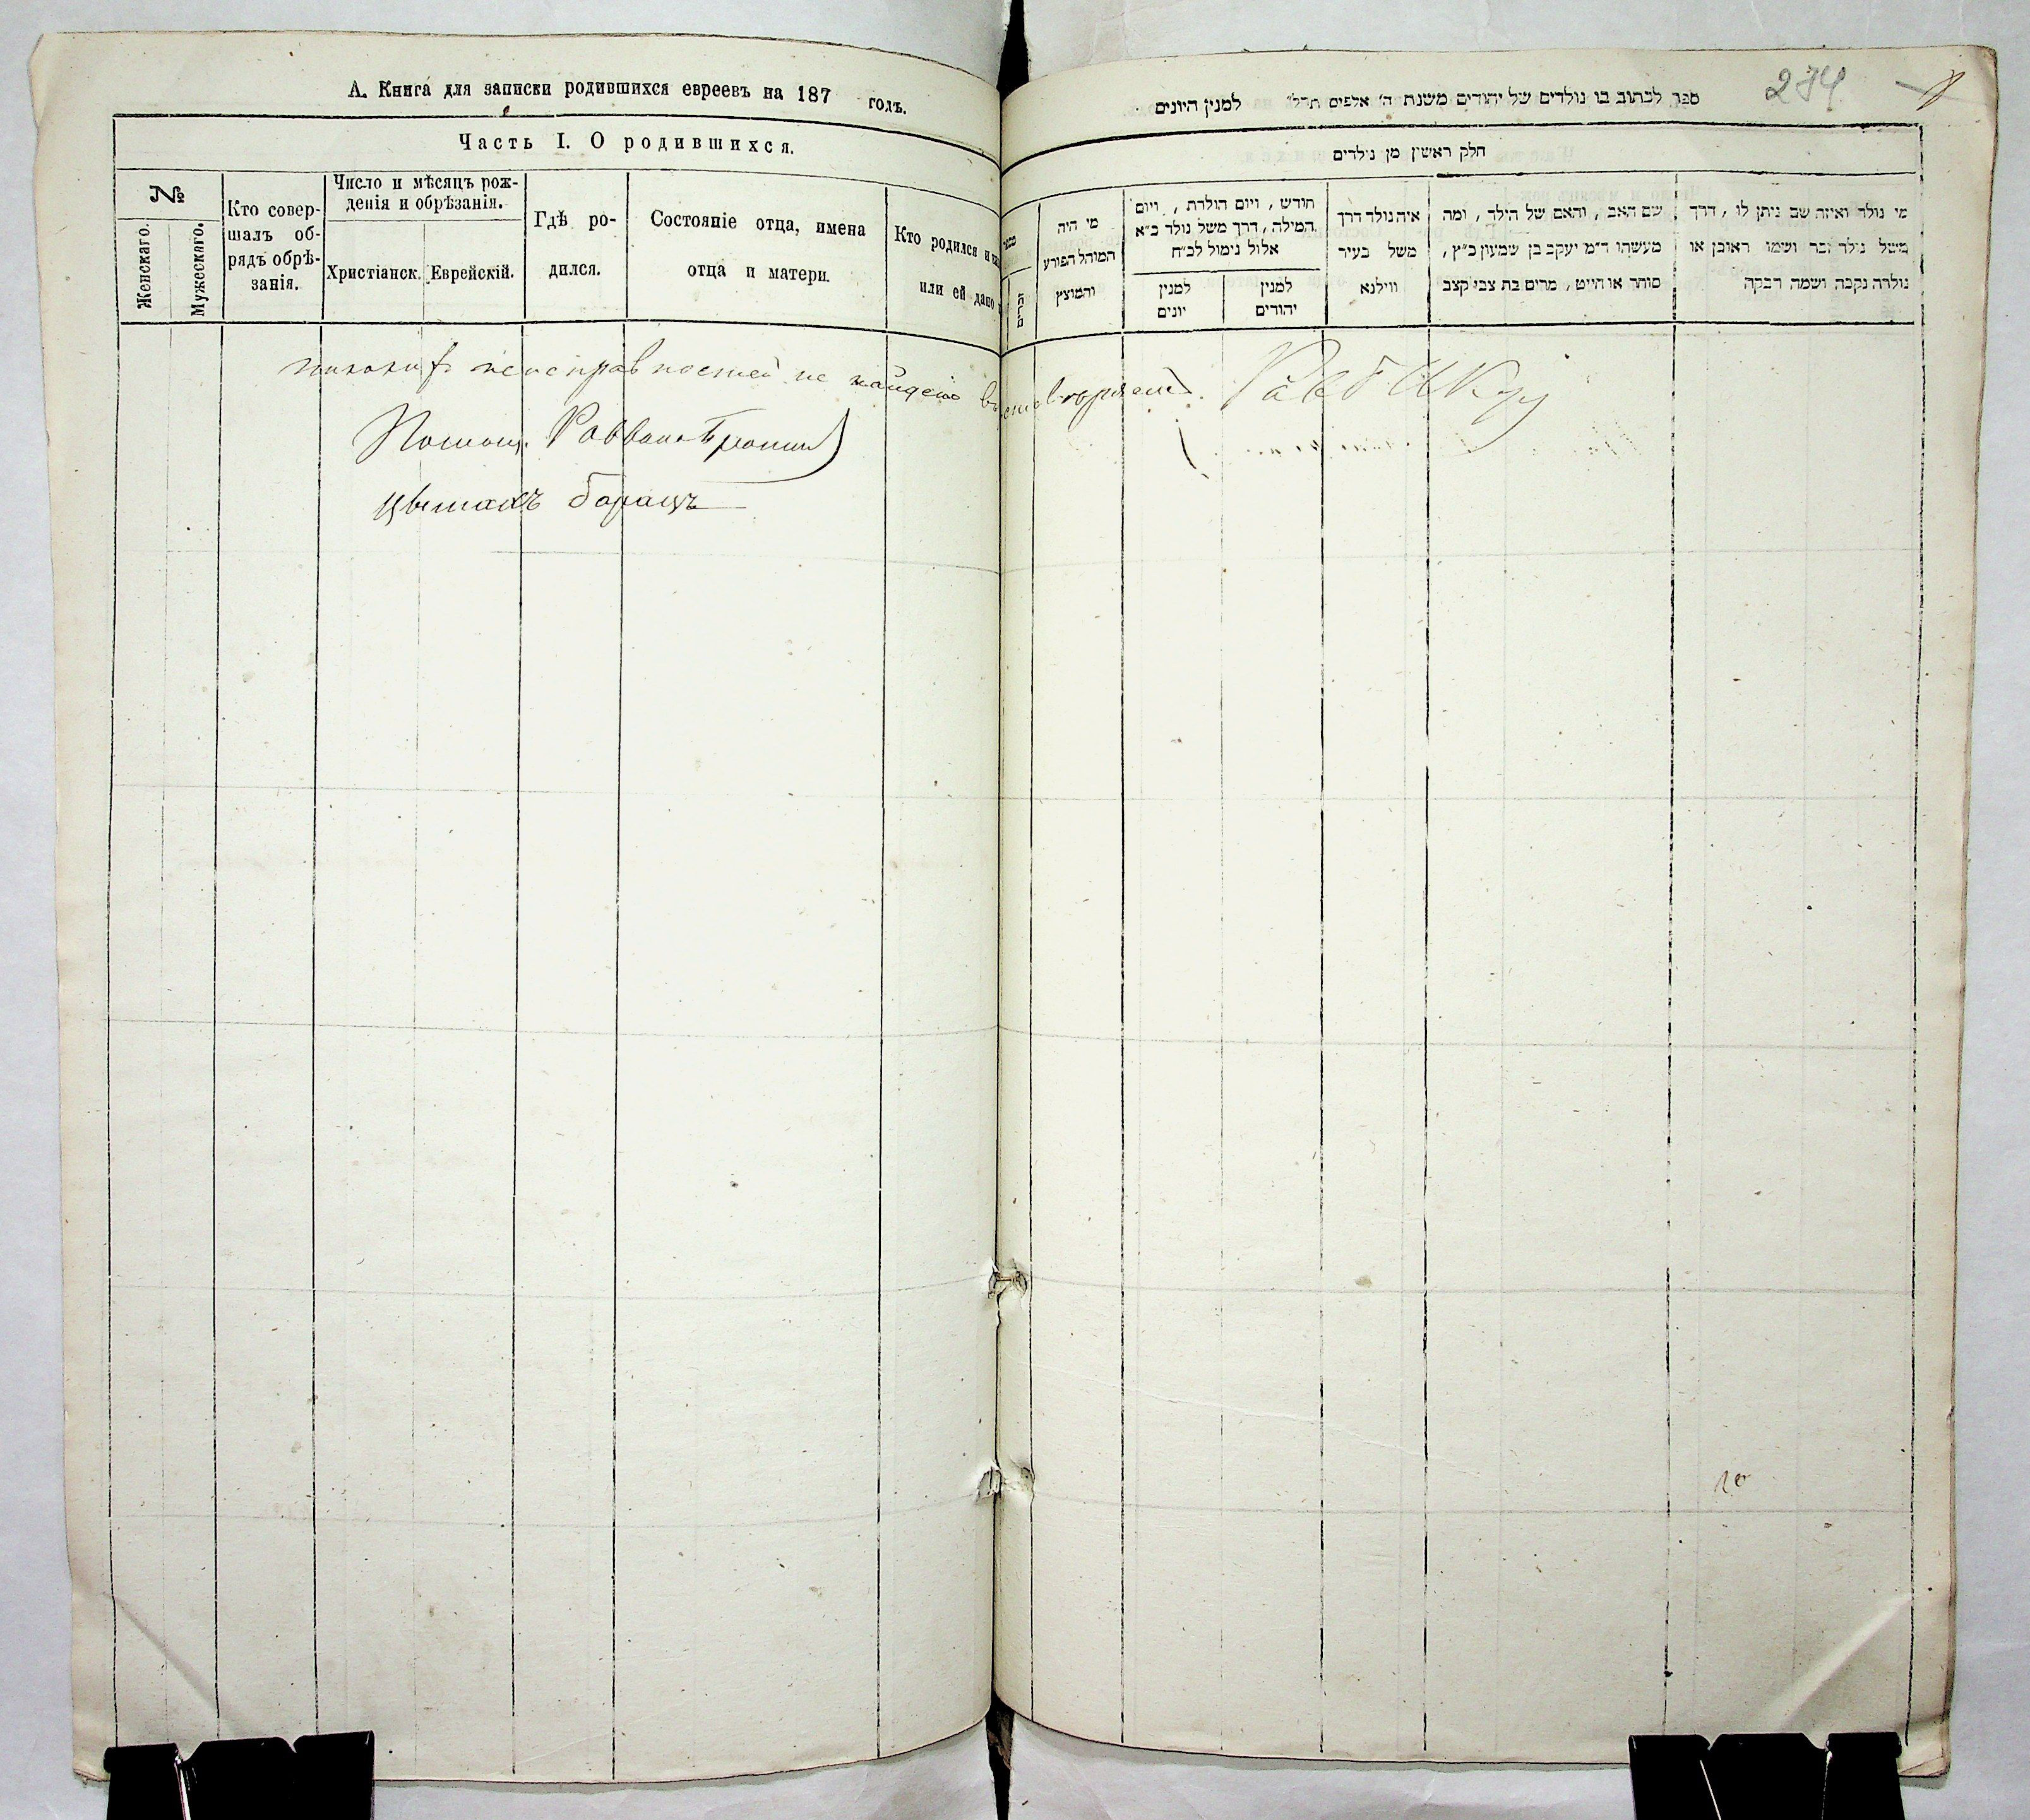 А. Книга для записки родившихся евреевъ на 187 годъ.
Часть I. О родившихся.
№
Женскаго.
Мужескаго.
Кто совер-
шалъ об-
рядъ обрѣ-
занія.
Число и мѣсяцъ рож-
денія и обрѣзанія.
Христіанск.
Еврейскій.
Гдѣ ро-
дился.
Состояніе отца, имена
отца и матери.
Кто родился и
или ей дано
никакихъ неисправностей не найдено въ
Помощ. Раввина
274
ספר לכתוב בו נולדים של יהודים משנת ה׳ אלפים תרל״ למנין היונים
חלק ראשון מן נולדים
זכרים
מי היה
המוהל הפורע
והמוצץ
חודש , ויום הולדת , ויום
המילה , דרך משל נולד כ״א
אלול נימול לכ״ח
למנין
יונים
למנין
יהודים
איה נולד דרך
משל בעיר
ווילנא
שם האב , והאם של הילד , ומה
מעשהו ד״מ יעקב בן שמעון כ״ץ ,
סוחר או חייט , מרים בת צבי קצב
מי נולד ואיזה שם ניתן לו , דרך
משל נולד זכר ושמו ראובן או
נולדה נקבה ושמה רבקה